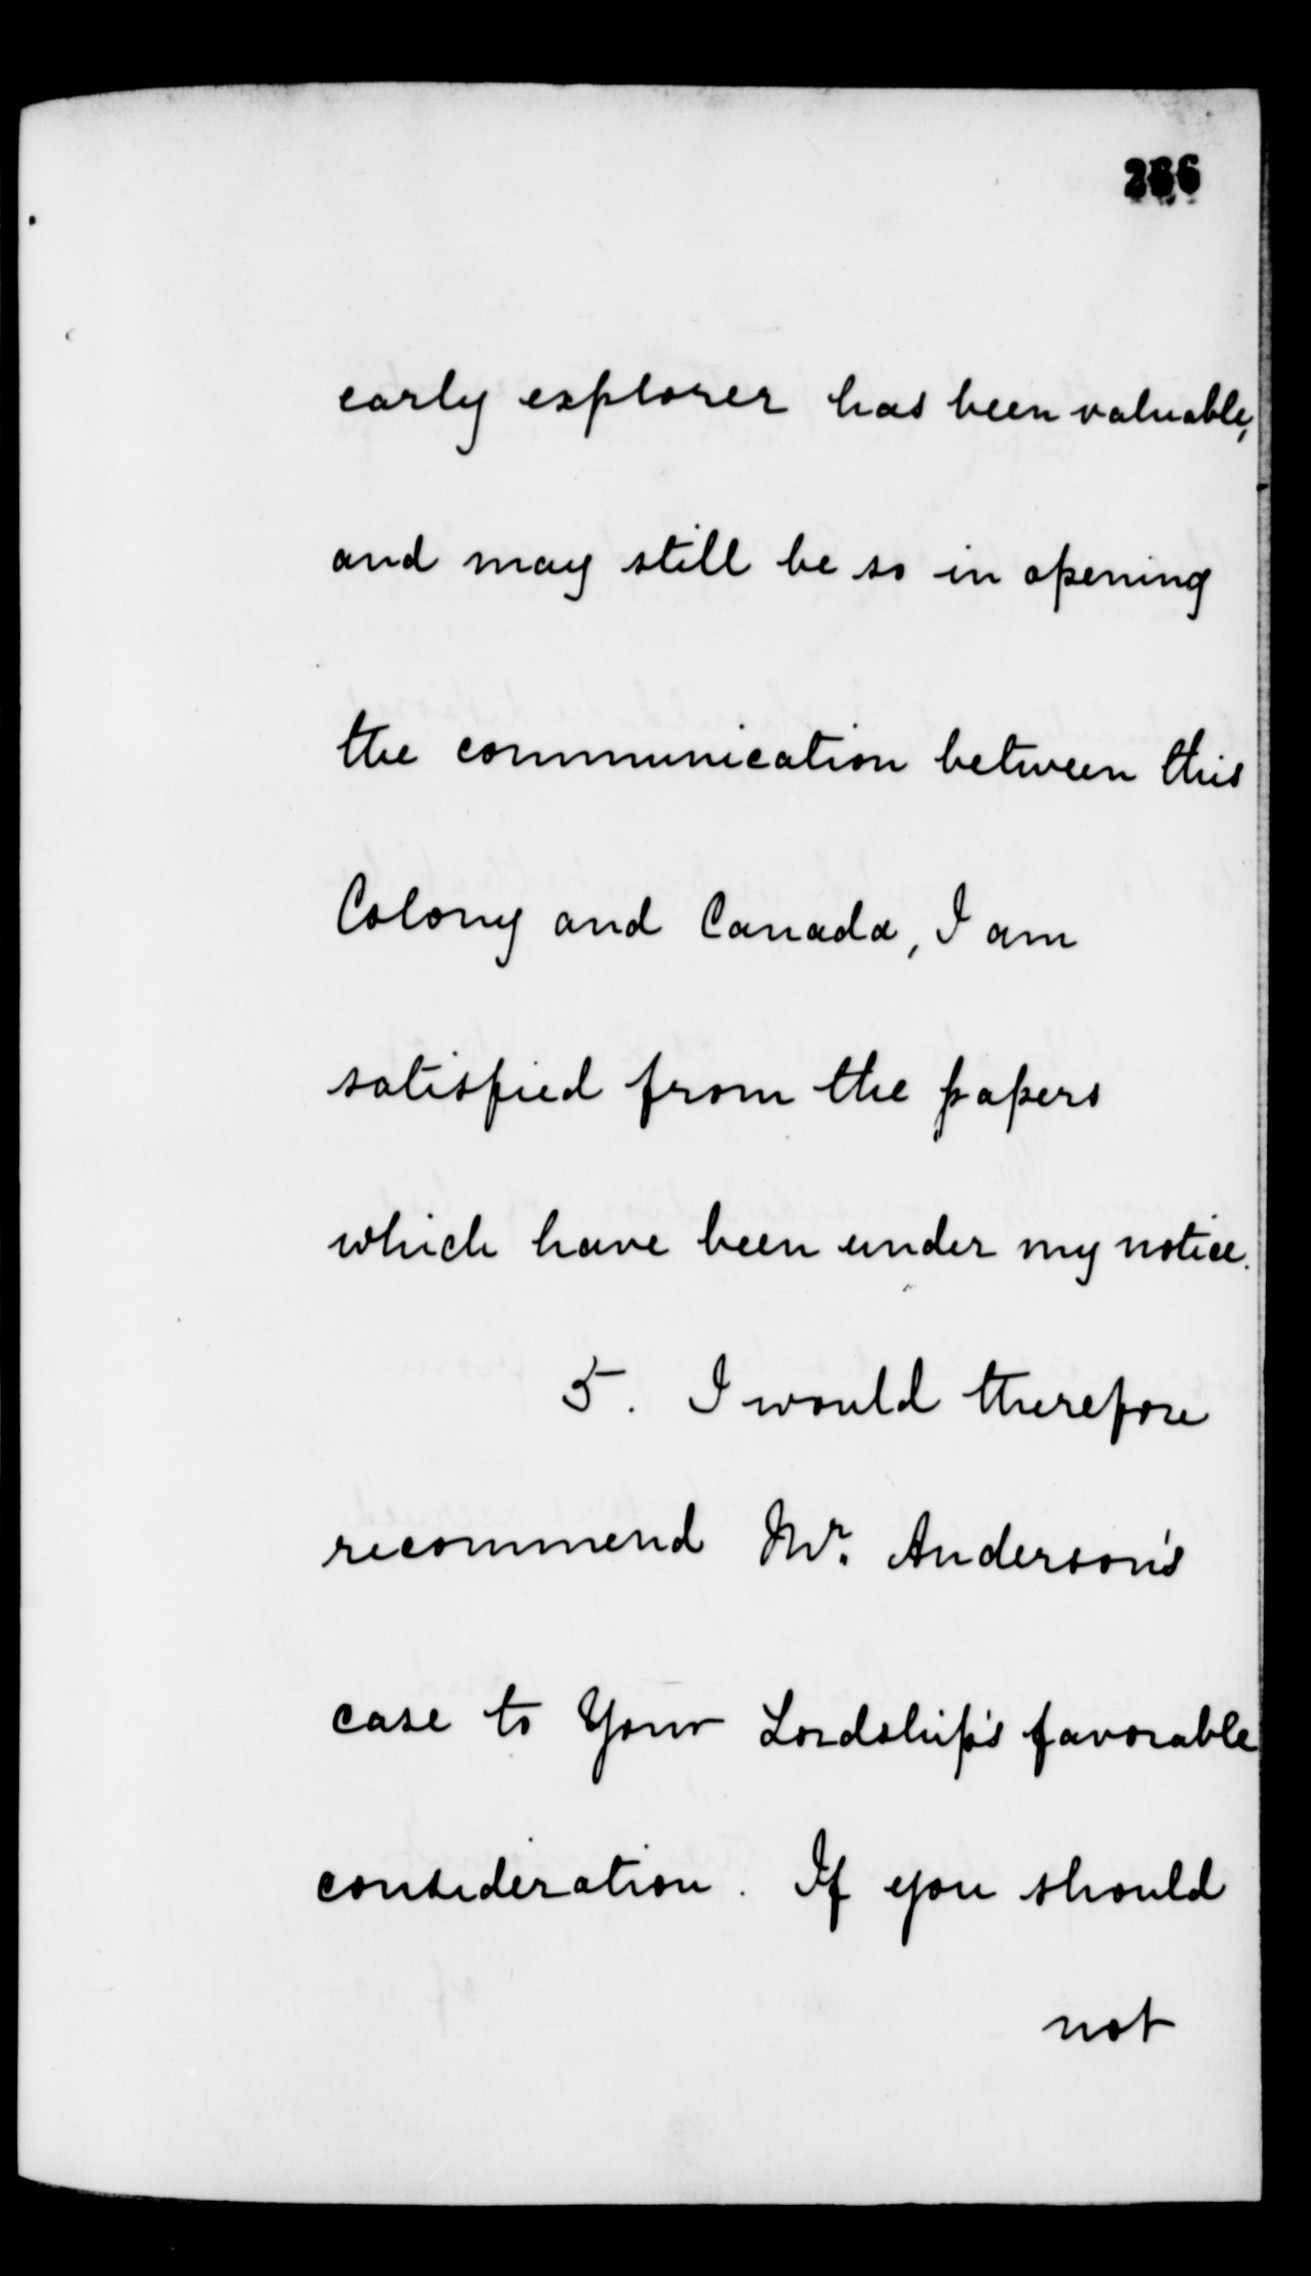 266
early explorer has been valuable,
and may still be so in opening
the communication between this
Colony and Canada, I am
satisfied from the papers
which have been under my notice.
5. I would therefore
recommend Mr. Anderson's
case to Your Lordship's favorable
consideration. If you should
not